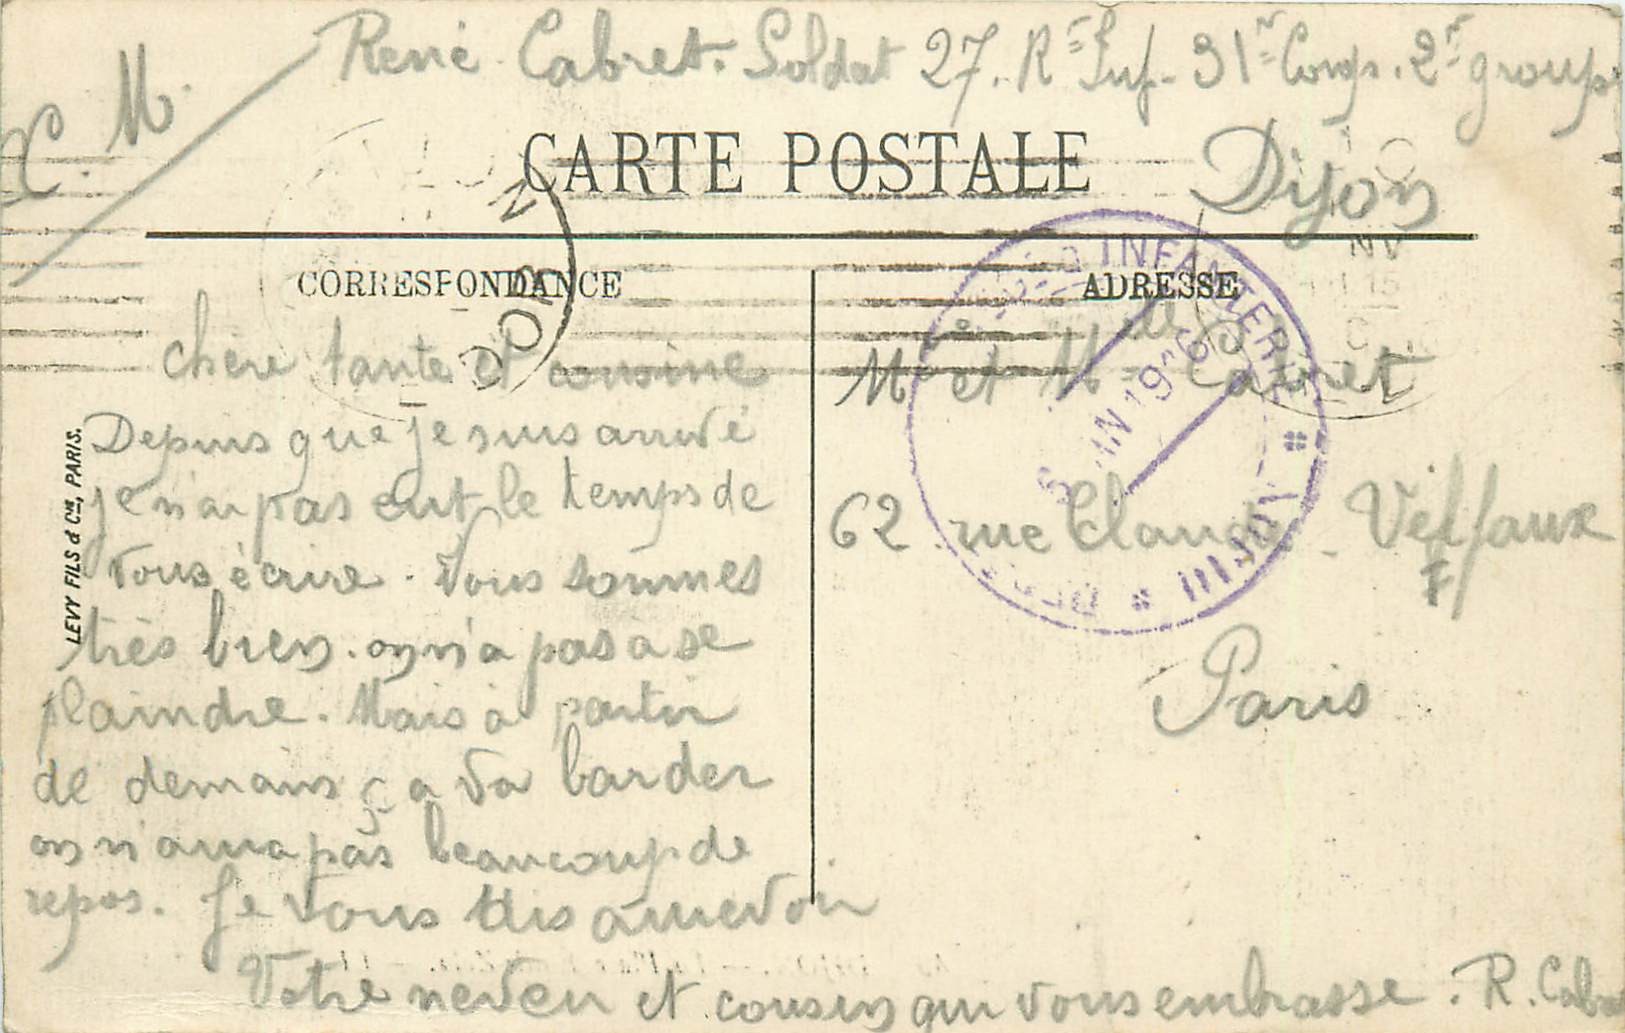 C. M.
René Cabret. Soldat 27. Rᵗ Inf. 31ᵉ Comp. 2ᵉ groupe
Dijon
CARTE POSTALE
CORRESPONDANCE
ADRESSE
INFANTERIE
DIJON
LEVY FILS & Cie, PARIS.
chère tante et cousine
Depuis que je suis arrivé
je n'ai pas eut le temps de
vous écrire. Nous sommes
très bien. on n'a pas a se
plaindre. Mais à partir
de demain ça va barder
on n'aura pas beaucoup de
repos. Je vous dis aurevoir
Votre neveu et cousin qui vous embrasse. R. Cabret
Mᵉ et Mˡˡᵉ Cabret
62 rue Claude Vellfaux
Paris